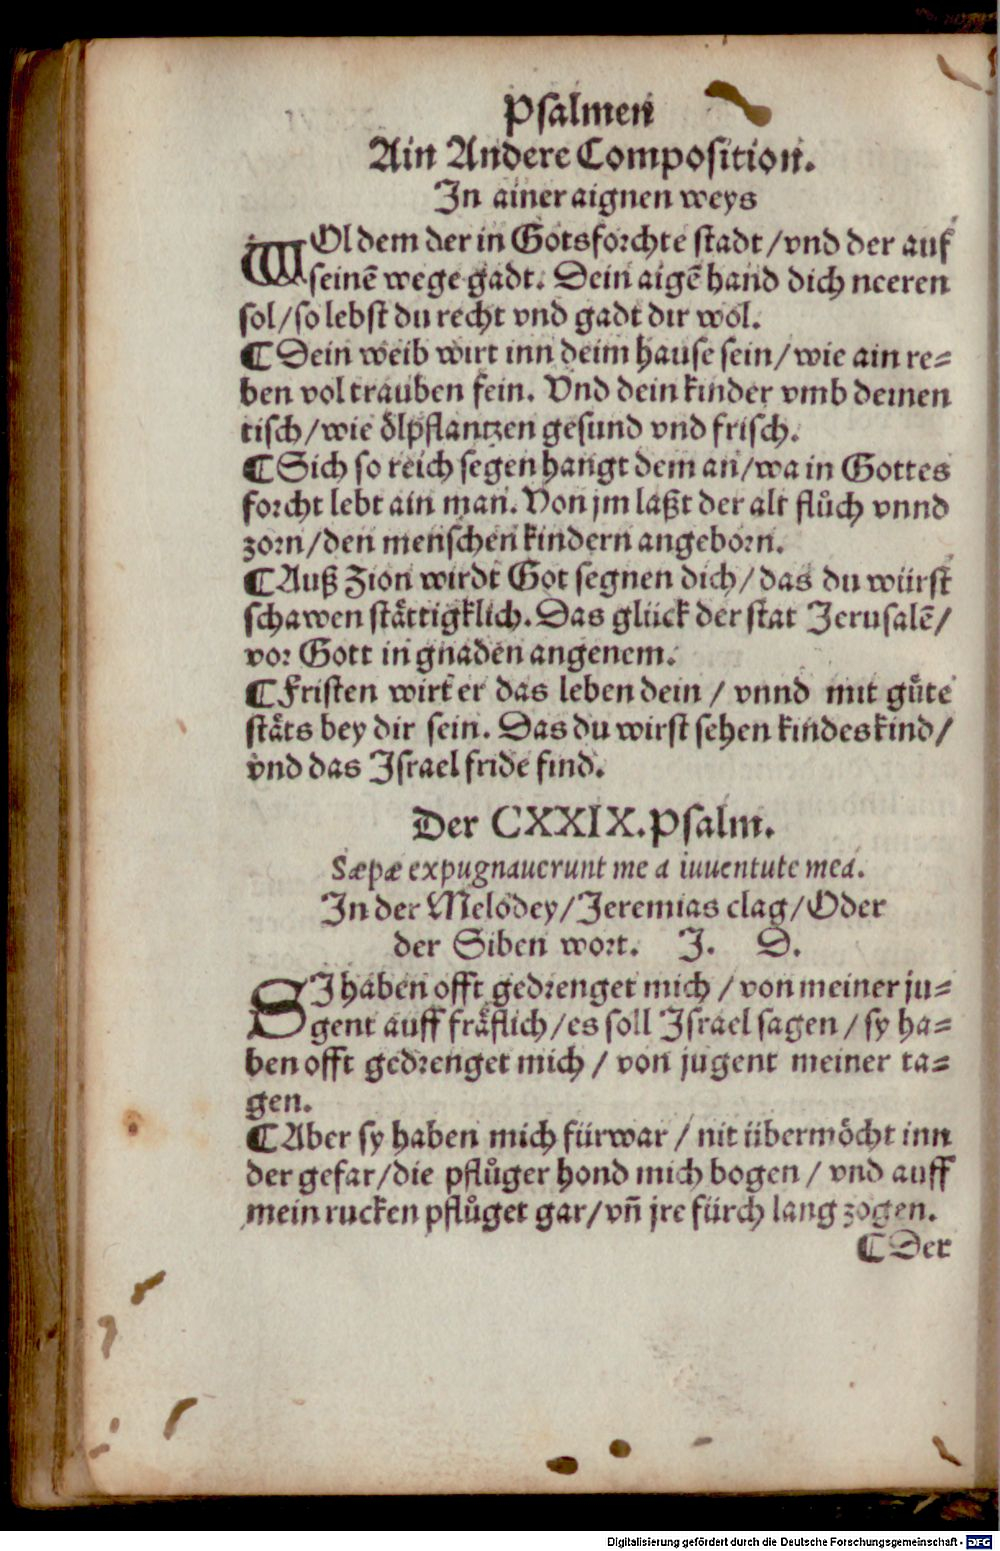 Psalmen
Ain Andere Composition.
In ainer aignen weys
WOl dem der in Gotsforchte stadt/vnd der auf
seinē wege gadt. Dein aigē hand dich neeren
sol/so lebst du recht vnd gadt dir wol.
¶ Dein weib wirt inn deim hause sein/wie ain re⸗
ben vol trauben fein. Vnd dein kinder vmb deinen
tisch/wie ölpflantzen gesund vnd frisch.
¶ Sich so reich segen hangt dem an/wa in Gottes
forcht lebt ain man. Von jm laßt der alt flůch vnnd
zorn/den menschen kindern angeborn.
¶ Auß Zion wirdt Got segnen dich/das du würst
schawen stättigklich. Das glück der stat Jerusalē/
vor Gott in gnaden angenem.
¶ Fristen wirt er das leben dein / vnnd mit gůte
stäts bey dir sein. Das du wirst sehen kindes kind/
vnd das Israel fride find.
Der CXXIX. Psalm.
Sæpæ expugnauerunt me a iuuentute mea.
In der Melodey/Jeremias clag/Oder
der Siben wort. J. D.
SI haben offt gedrenget mich / von meiner ju⸗
gent auff fräflich/es soll Israel sagen / sy ha⸗
ben offt gedrenget mich / von jugent meiner ta⸗
gen.
¶ Aber sy haben mich fürwar / nit übermöcht inn
der gefar/die pflůger hond mich bogen / vnd auff
mein rucken pflůget gar/vn̄ jre fürch lang zogen.
¶ Der
Digitalisierung gefördert durch die Deutsche Forschungsgemeinschaft - DFG